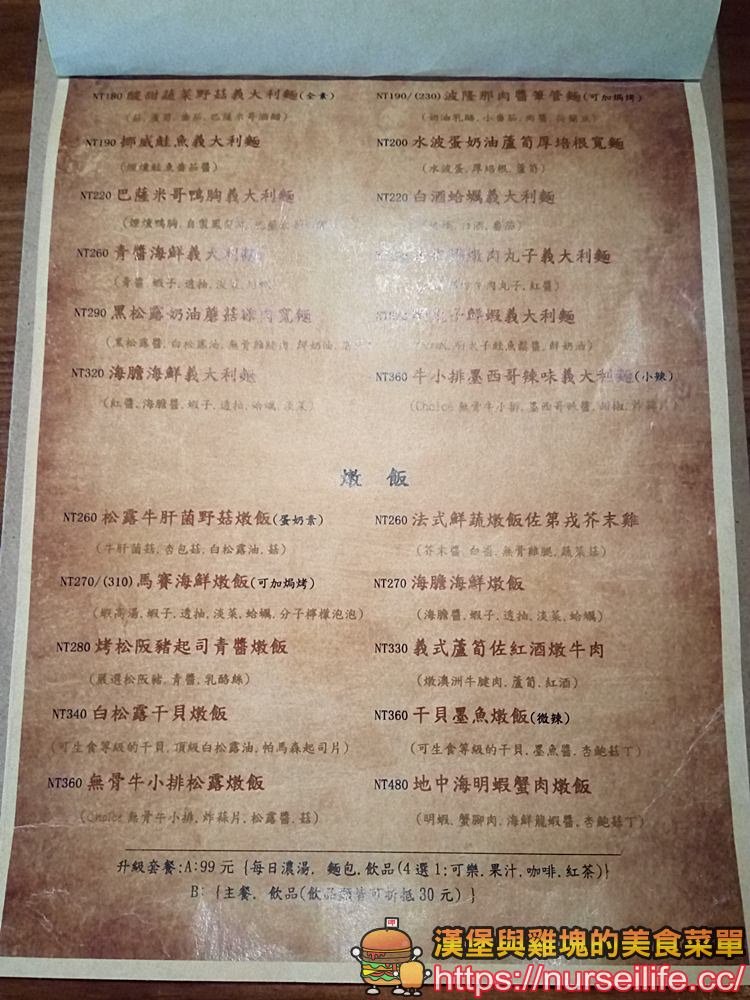 NT180 酸甜蔬菜野菇義大利麵(全素)
NT190/(230) 波隆那肉醬筆管麵(可加焗烤)
(奶油乳酪.小番茄.肉醬
NT190 挪威鮭魚義大利麵
NT200 水波蛋奶油蘆筍厚培根寬麵
(煙燻鮭魚番茄醬)
(水波蛋.厚培根.蘆筍)
NT220 巴薩米哥鴨胸義大利麵
NT220 白酒蛤蠣義大利麵
(煙燻鴨胸.自製
白酒.番茄)
NT260 青醬海鮮義大利麵
燉肉丸子義大利麵
(青醬.蝦子.透抽.淡菜
牛肉丸子.紅醬)
NT290 黑松露奶油蘑菇 肉寬麵
子鮮蝦義大利麵
(黑松露醬.白松露油.無骨雞腿肉.鮮奶油
明太子鮭魚鬆醬.鮮奶油)
NT320 海膽海鮮義大利麵
NT360 牛小排墨西哥辣味義大利麵(小辣)
(紅醬.海膽醬.蝦子.透抽.蛤蠣.淡菜)
(Choice 無骨牛小排.墨西哥辣醬
燉 飯
NT260 松露牛肝菌野菇燉飯(蛋奶素)
NT260 法式鮮蔬燉飯佐第戎芥末雞
(牛肝菌菇.杏包菇.白松露油.菇)
(芥末醬.白醬.無骨雞腿.蔬菜菇)
NT270/(310) 馬賽海鮮燉飯(可加焗烤)
NT270 海膽海鮮燉飯
(蝦高湯.蝦子.透抽.淡菜.蛤蠣.分子檸檬泡泡)
(海膽醬.蝦子.透抽.淡菜.蛤蠣)
NT280 烤松阪豬起司青醬燉飯
NT330 義式蘆筍佐紅酒燉牛肉
(嚴選松阪豬.青醬.乳酪絲)
(燉澳洲牛腱肉.蘆筍.紅酒)
NT340 白松露干貝燉飯
NT360 干貝墨魚燉飯(微辣)
(可生食等級的干貝.頂級白松露油.帕馬森起司片)
(可生食等級的干貝.墨魚醬.杏鮑菇丁)
NT360 無骨牛小排松露燉飯
NT480 地中海明蝦蟹肉燉飯
(Choice 無骨牛小排.炸蒜片.松露醬.菇)
(明蝦.蟹腳肉.海鮮龍蝦醬.杏鮑菇丁)
升級套餐:A:99 元 {每日濃湯. 麵包.飲品(4 選 1:可樂.果汁.咖啡.紅茶)}
B: {主餐. 飲品(飲品類皆可折抵 30 元) }
漢堡與雞塊的美食菜單
https://nurseilife.cc/